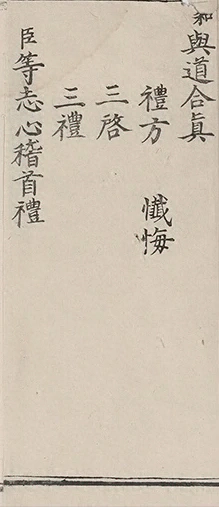 和與道合眞
禮方　懺悔
三啓
三禮
臣等志心稽首禮